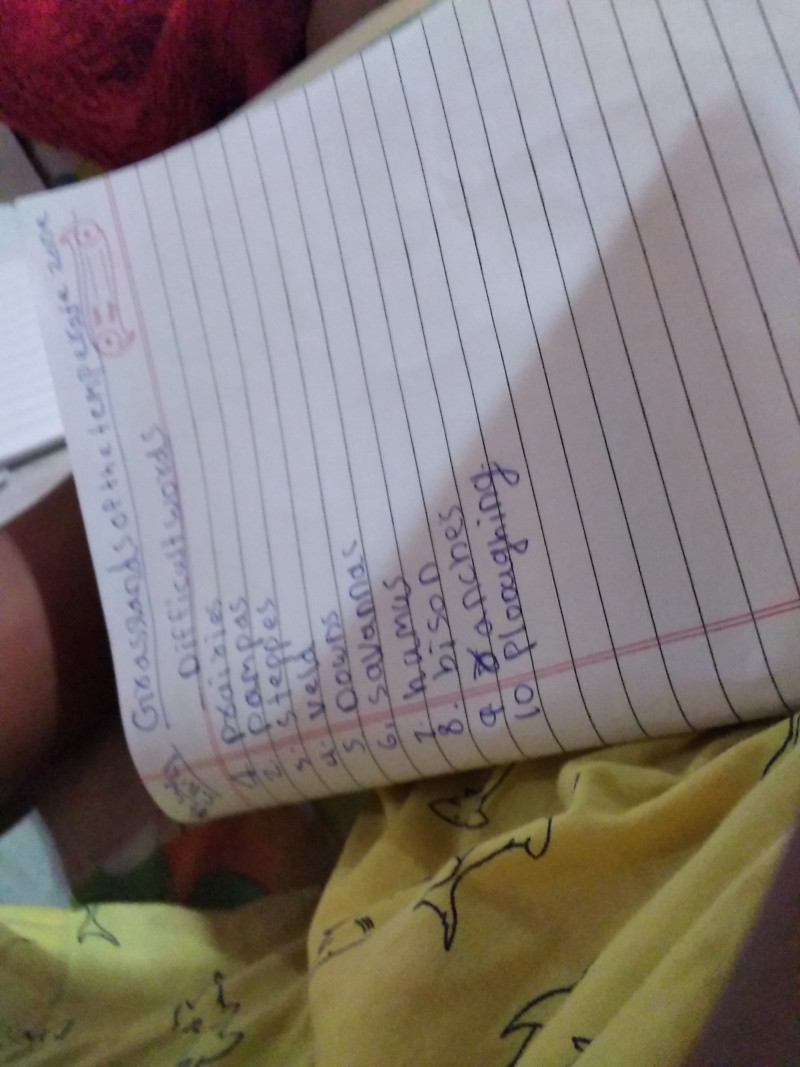 Grasslands of the temperate zone
Difficult words
1. prairies
2. pampas
3. steppes
4. veld
5. Downs
6. savannas
7. humus
8. bison
9 ranches
10 ploughing.